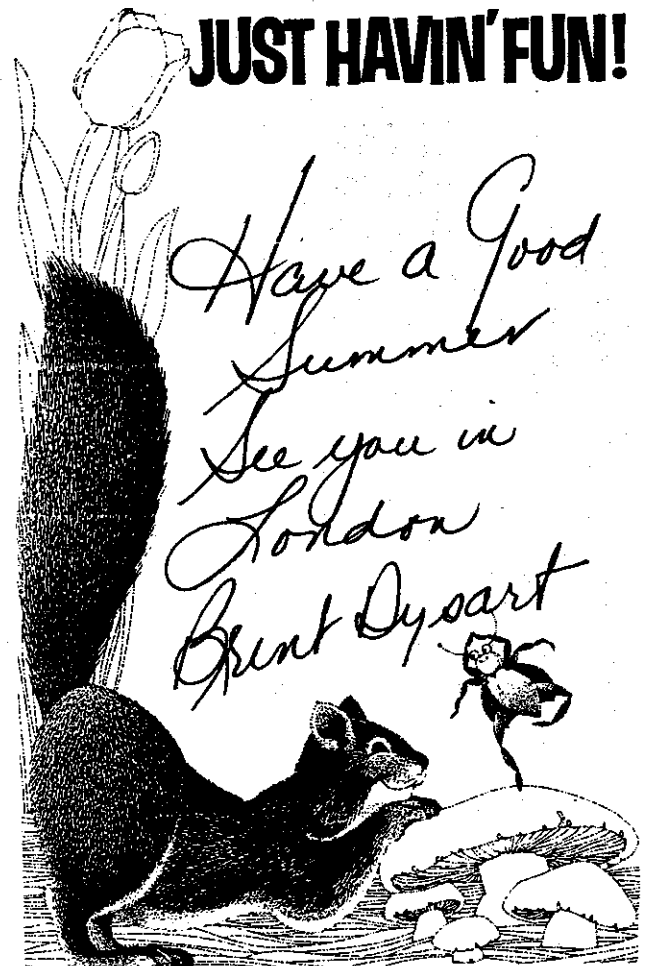 JUST HAVIN' FUN!
Have a Good
Summer
See you in
London
Brent Dysart